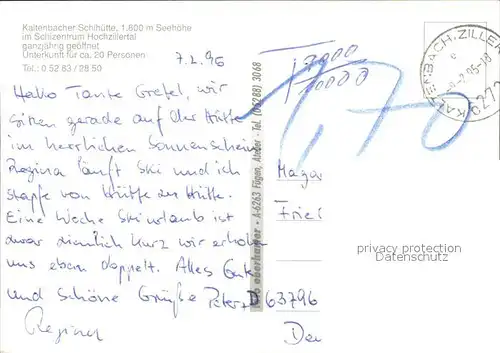 Kaltenbacher Schihütte, 1.800 m Seehöhe
im Schizentrum Hochzillertal
ganzjährig geöffnet
Unterkunft für ca. 20 Personen
Tel.: 0 52 83 / 28 50
7.2.96
Hallo Tante Gretel, wir
sitzen gerade auf der Hütte
im herrlichen Sonnenschein
Regina läuft Ski und ich
stapfe von Hütte zu Hütte.
Eine Woche Skiurlaub ist
zwar ziemlich kurz wir erholen
uns eben doppelt. Alles Gute
und schöne Grüße Peter +
Regina
foto oberhauser • A-6263 Fügen, Atelier - Tel. (05288) 3068
T 7000
10000
1,70
KALTENBACH, ZILLER
6272
Magar
Frier
D 63796
Der
privacy protection
Datenschutz